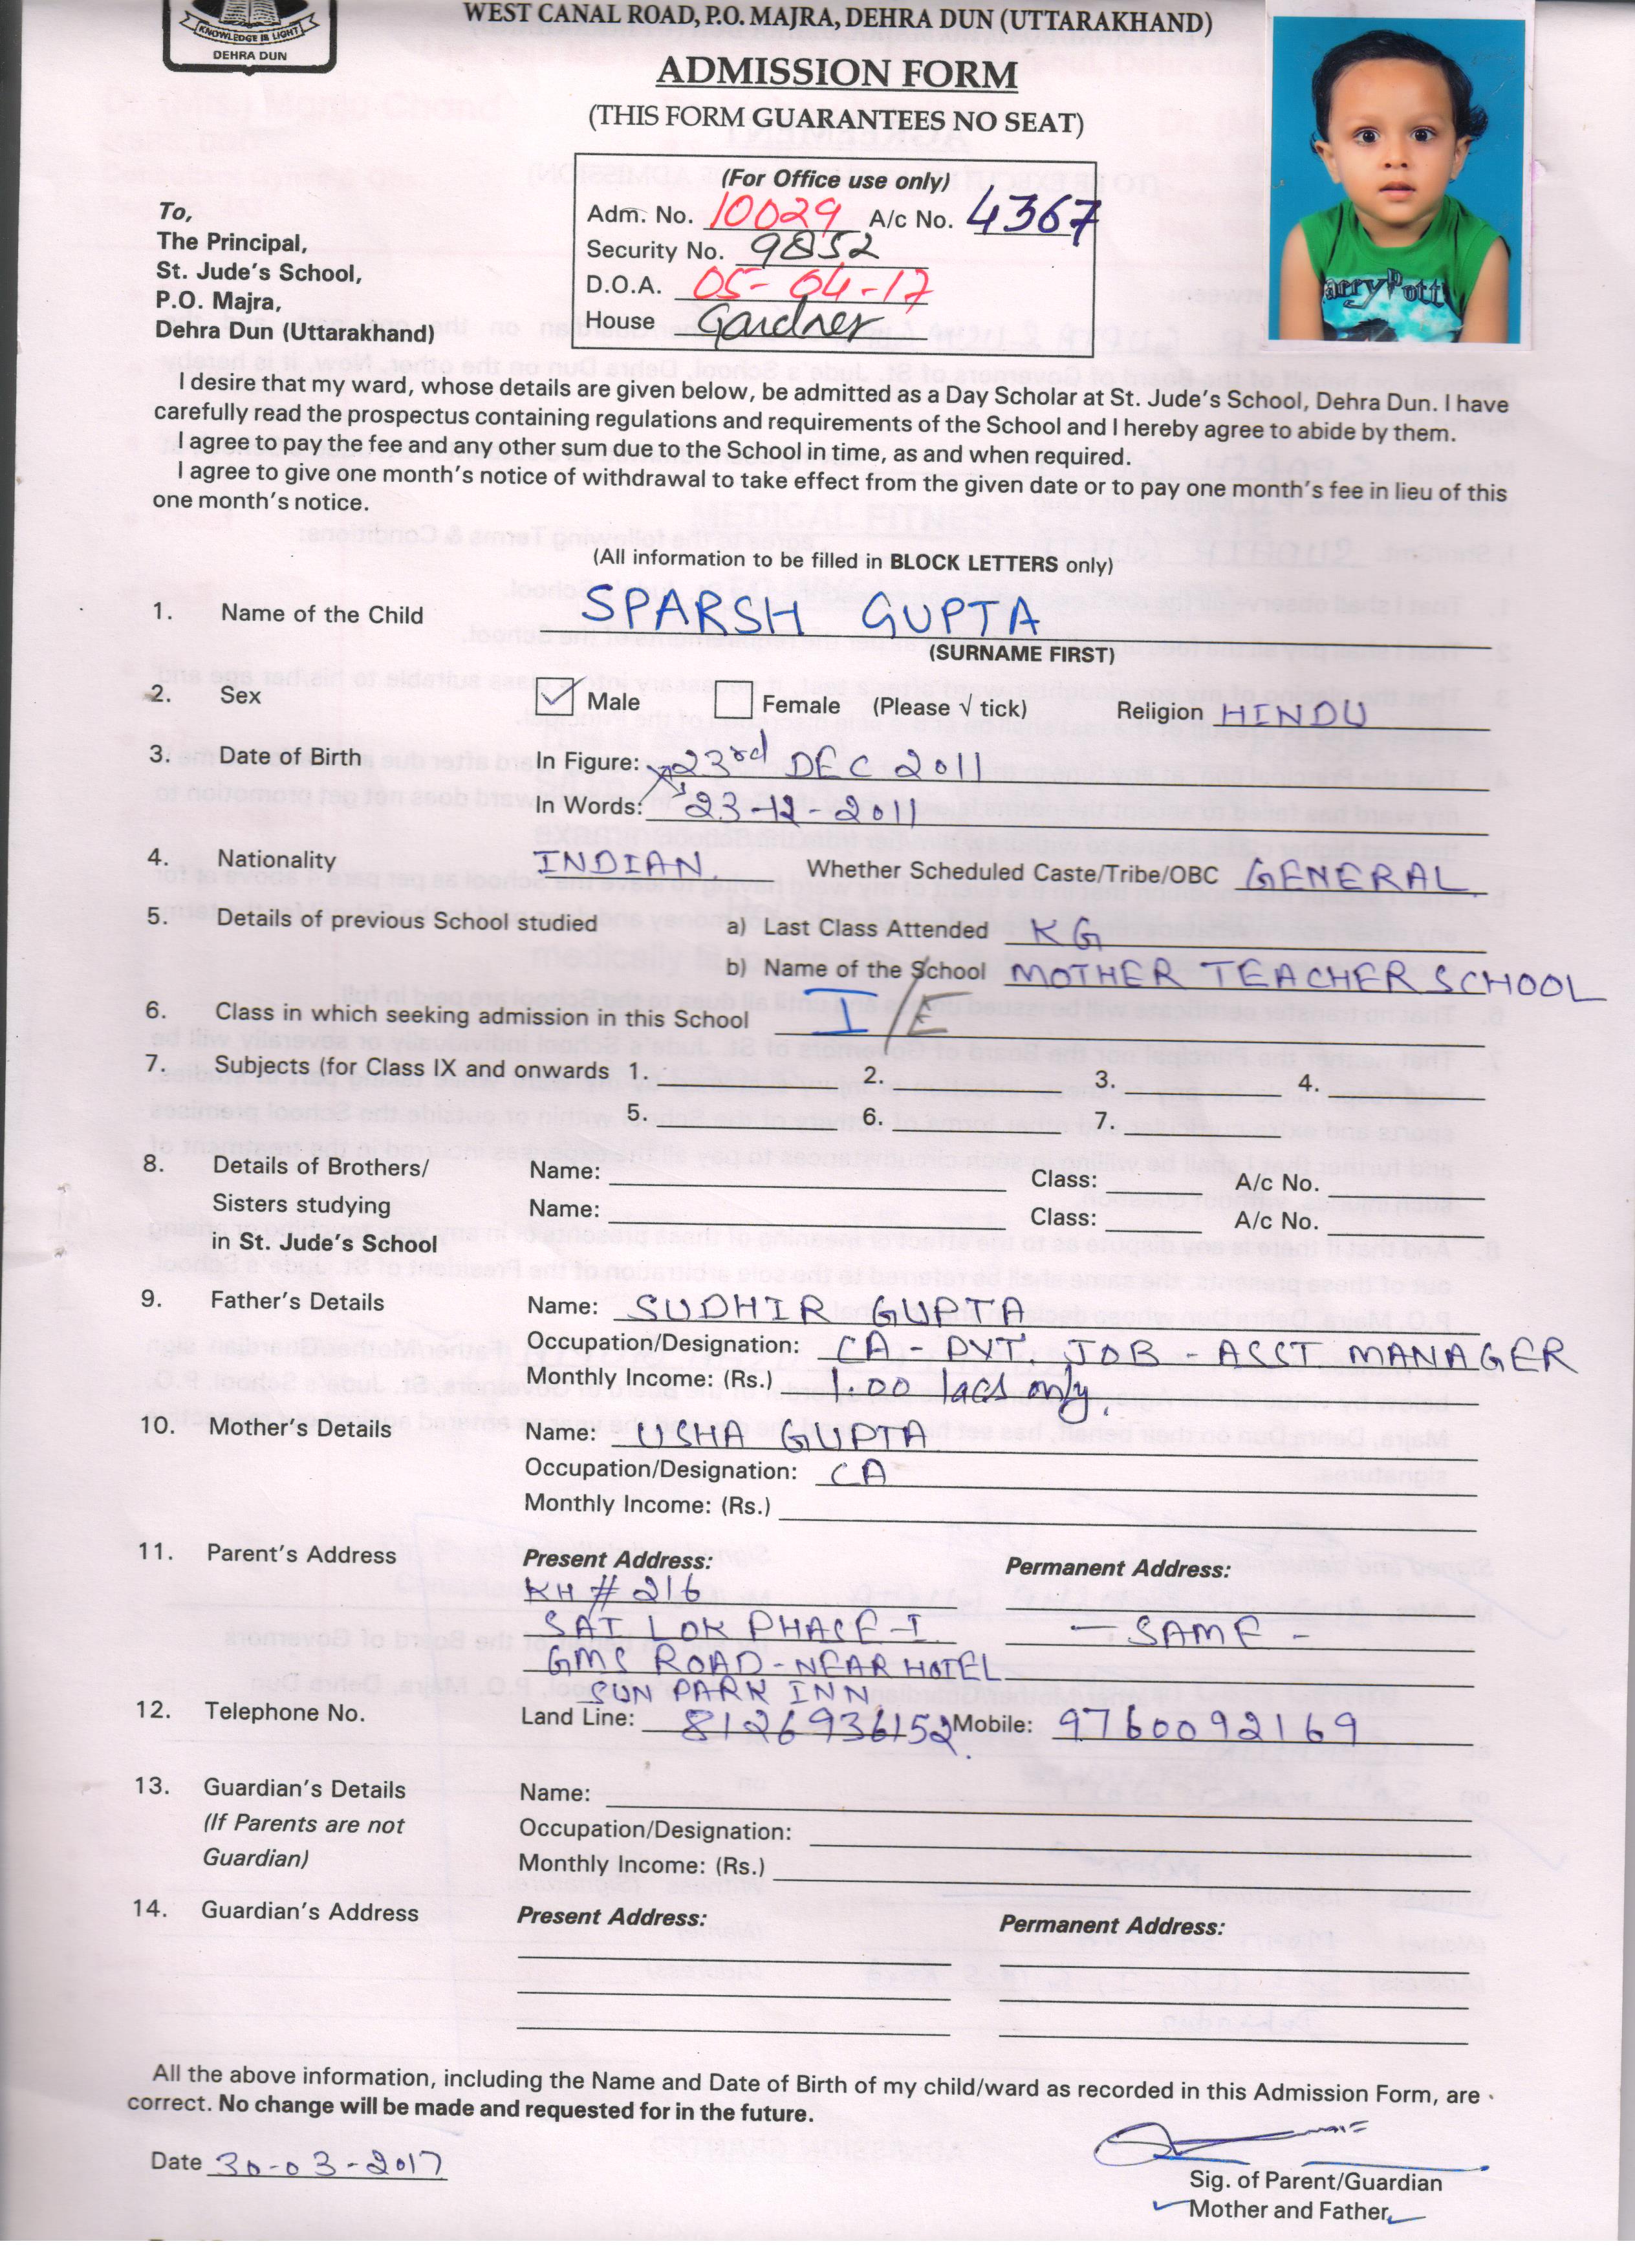 KNOWLEDGE IS LIGHT
DEHRA DUN
WEST CANAL ROAD, P.O. MAJRA, DEHRA DUN (UTTARAKHAND)
ADMISSION FORM
(THIS FORM GUARANTEES NO SEAT)
(For Office use only)
Adm. No. 10029 A/c No. 4367
Security No. 9852
D.O.A. 05-04-17
House Gardner
arry Pott
To,
The Principal,
St. Jude's School,
P.O. Majra,
Dehra Dun (Uttarakhand)
I desire that my ward, whose details are given below, be admitted as a Day Scholar at St. Jude's School, Dehra Dun. I have
carefully read the prospectus containing regulations and requirements of the School and I hereby agree to abide by them.
I agree to pay the fee and any other sum due to the School in time, as and when required.
I agree to give one month's notice of withdrawal to take effect from the given date or to pay one month's fee in lieu of this
one month's notice.
(All information to be filled in BLOCK LETTERS only)
1. Name of the Child SPARSH GUPTA
(SURNAME FIRST)
2. Sex Male Female (Please √ tick) Religion HINDU
3. Date of Birth In Figure: 23rd DEC 2011
In Words: 23-12-2011
4. Nationality INDIAN. Whether Scheduled Caste/Tribe/OBC GENERAL.
5. Details of previous School studied a) Last Class Attended KG
b) Name of the School MOTHER TEACHER SCHOOL
6. Class in which seeking admission in this School I/E
7. Subjects (for Class IX and onwards 1. 2. 3. 4.
5. 6. 7.
8. Details of Brothers/ Name: Class: A/c No.
Sisters studying Name: Class: A/c No.
in St. Jude's School
9. Father's Details Name: SUDHIR GUPTA
Occupation/Designation: CA - PVT. JOB - ASST MANAGER
Monthly Income: (Rs.) 1.00 lacs only.
10. Mother's Details Name: USHA GUPTA
Occupation/Designation: CA
Monthly Income: (Rs.)
11. Parent's Address Present Address: Permanent Address:
KH # 216
SAI LOK PHASE-I. - SAME -
GMS ROAD-NEAR HOTEL
SUN PARK INN.
12. Telephone No. Land Line: 8126936152 Mobile: 9760092169
13. Guardian's Details Name:
(If Parents are not Occupation/Designation:
Guardian) Monthly Income: (Rs.)
14. Guardian's Address Present Address: Permanent Address:
All the above information, including the Name and Date of Birth of my child/ward as recorded in this Admission Form, are
correct. No change will be made and requested for in the future.
Date 30-03-2017
Sig. of Parent/Guardian
Mother and Father